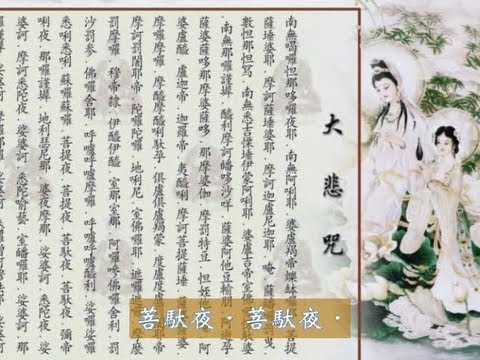 大悲咒
南無喝囉怛那哆囉夜耶．南無阿唎耶．婆盧羯帝爍缽囉耶．菩提
薩埵婆耶．摩訶薩埵婆耶．摩訶迦盧尼迦耶．唵．薩皤囉罰曳．
數怛那怛寫．南無悉吉慄埵伊蒙阿唎耶．婆盧吉帝室佛囉
．南無那囉謹墀．醯利摩訶皤哆沙咩．薩婆阿他豆輸朋．阿逝孕
薩婆薩哆那摩婆薩哆．那摩婆伽．摩罰特豆．怛姪他．
婆盧醯．盧迦帝．迦羅帝．夷醯唎．摩訶菩提薩埵．薩
摩囉摩囉．摩醯摩醯唎馱孕．俱盧俱盧羯蒙．度盧度盧
摩訶罰闍耶帝．陀囉陀囉．地利尼．室佛囉耶．遮囉遮囉．摩麼
罰摩囉．穆帝隸．伊醯伊醯．室那室那．阿囉嘇佛囉舍利．罰
沙罰參．佛囉舍耶．呼嚧呼嚧摩囉．呼嚧呼嚧醯利．娑囉娑囉
悉唎悉唎．蘇嚧蘇嚧．菩提夜．菩提夜．菩馱夜．菩馱夜．彌帝
唎夜．那囉謹墀．地利瑟尼那．婆夜摩那．娑婆訶．悉陀夜．娑
婆訶．摩訶悉陀夜．娑婆訶．悉陀喻藝．室皤囉耶．娑婆訶．那
菩馱夜．菩馱夜．